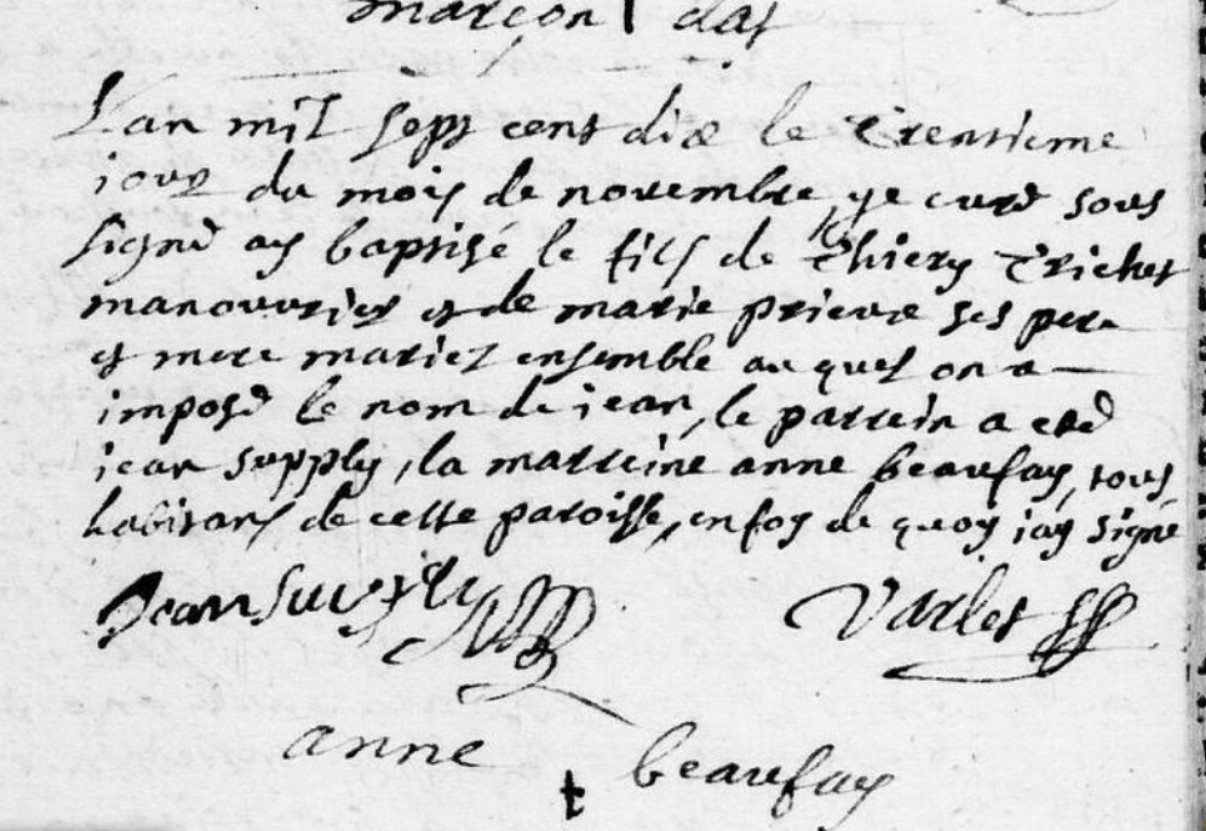 L'an mil sept cent dix le trentieme
jour du mois de novembre, je curé sous
signé ay baptisé le fils de Thiery Trichet
manouvrier et de marie prieux ses pere
et mere mariez ensemble auquel on a
imposé le nom de jean, le parrein a eté
jean supply, la marreine anne beaufay, tous
habitans de cette paroisse, en foy de quoy jay signé
Jean Supply Varlet
anne beaufay